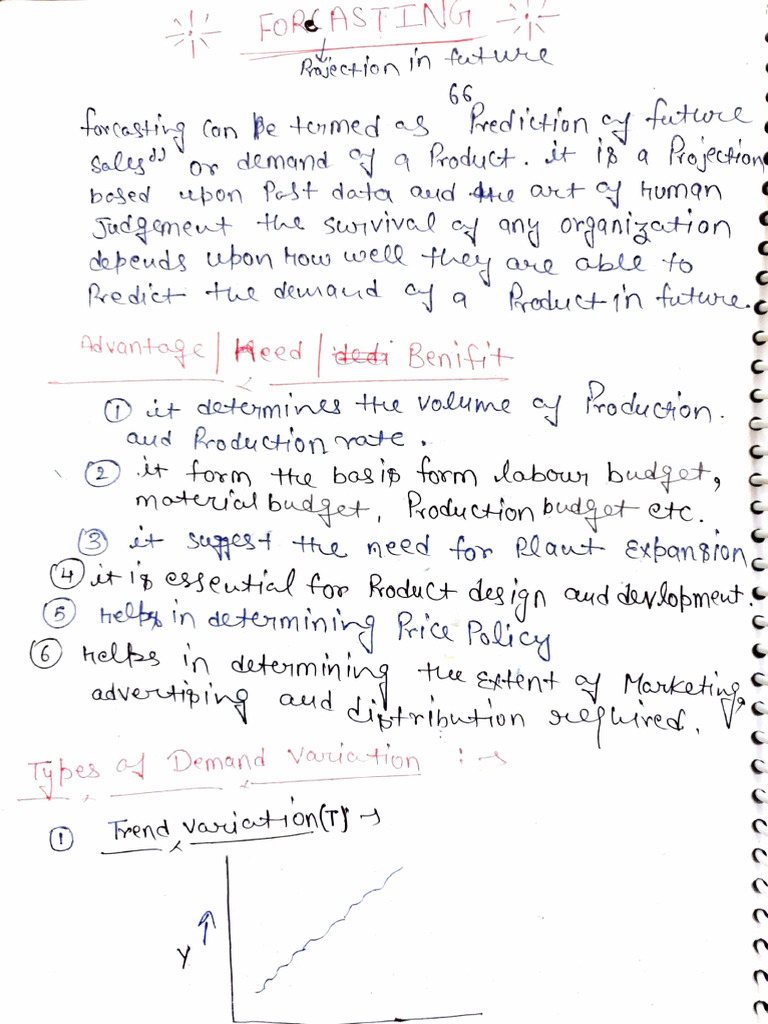 FORCASTING
Projection in future
forcasting can be termed as "Prediction of future
sales" or demand of a Product. it is a Projection
based upon Past data and the art of Human
Judgement the survival of any organization
depends upon How well they are able to
Predict the demand of a Product in future.
Advantage | Need | Benifit
① it determines the volume of Production.
and Production rate.
② it form the basis form labour budget,
material budget, Production budget etc.
③ it suggest the need for Plant Expansion
④ it is essential for Product design and devlopment.
⑤ Helps in determining Price Policy
⑥ Helps in determining the Extent of Marketing,
advertising and distribution required.
Types of Demand Variation :→
① Trend Variation (T) →
Y